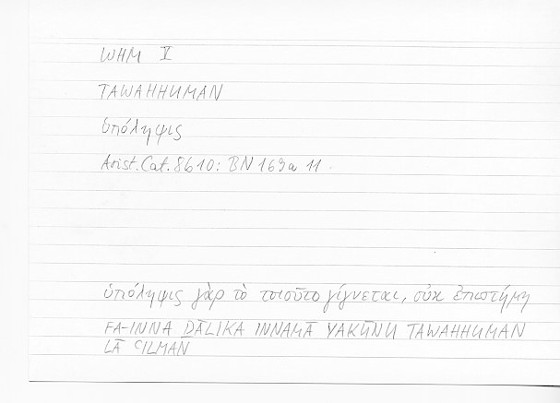 WHM V
TAWAHHUMAN
ὑπόληψις
Arist.Cat.8b10: BN 169a 11.
ὑπόληψις γὰρ τὸ τοιοῦτο γίγνεται, οὐκ ἐπιστήμη
FA-INNA ḎĀLIKA INNAMĀ YAKŪNU TAWAHHUMAN
LĀ ʿILMAN